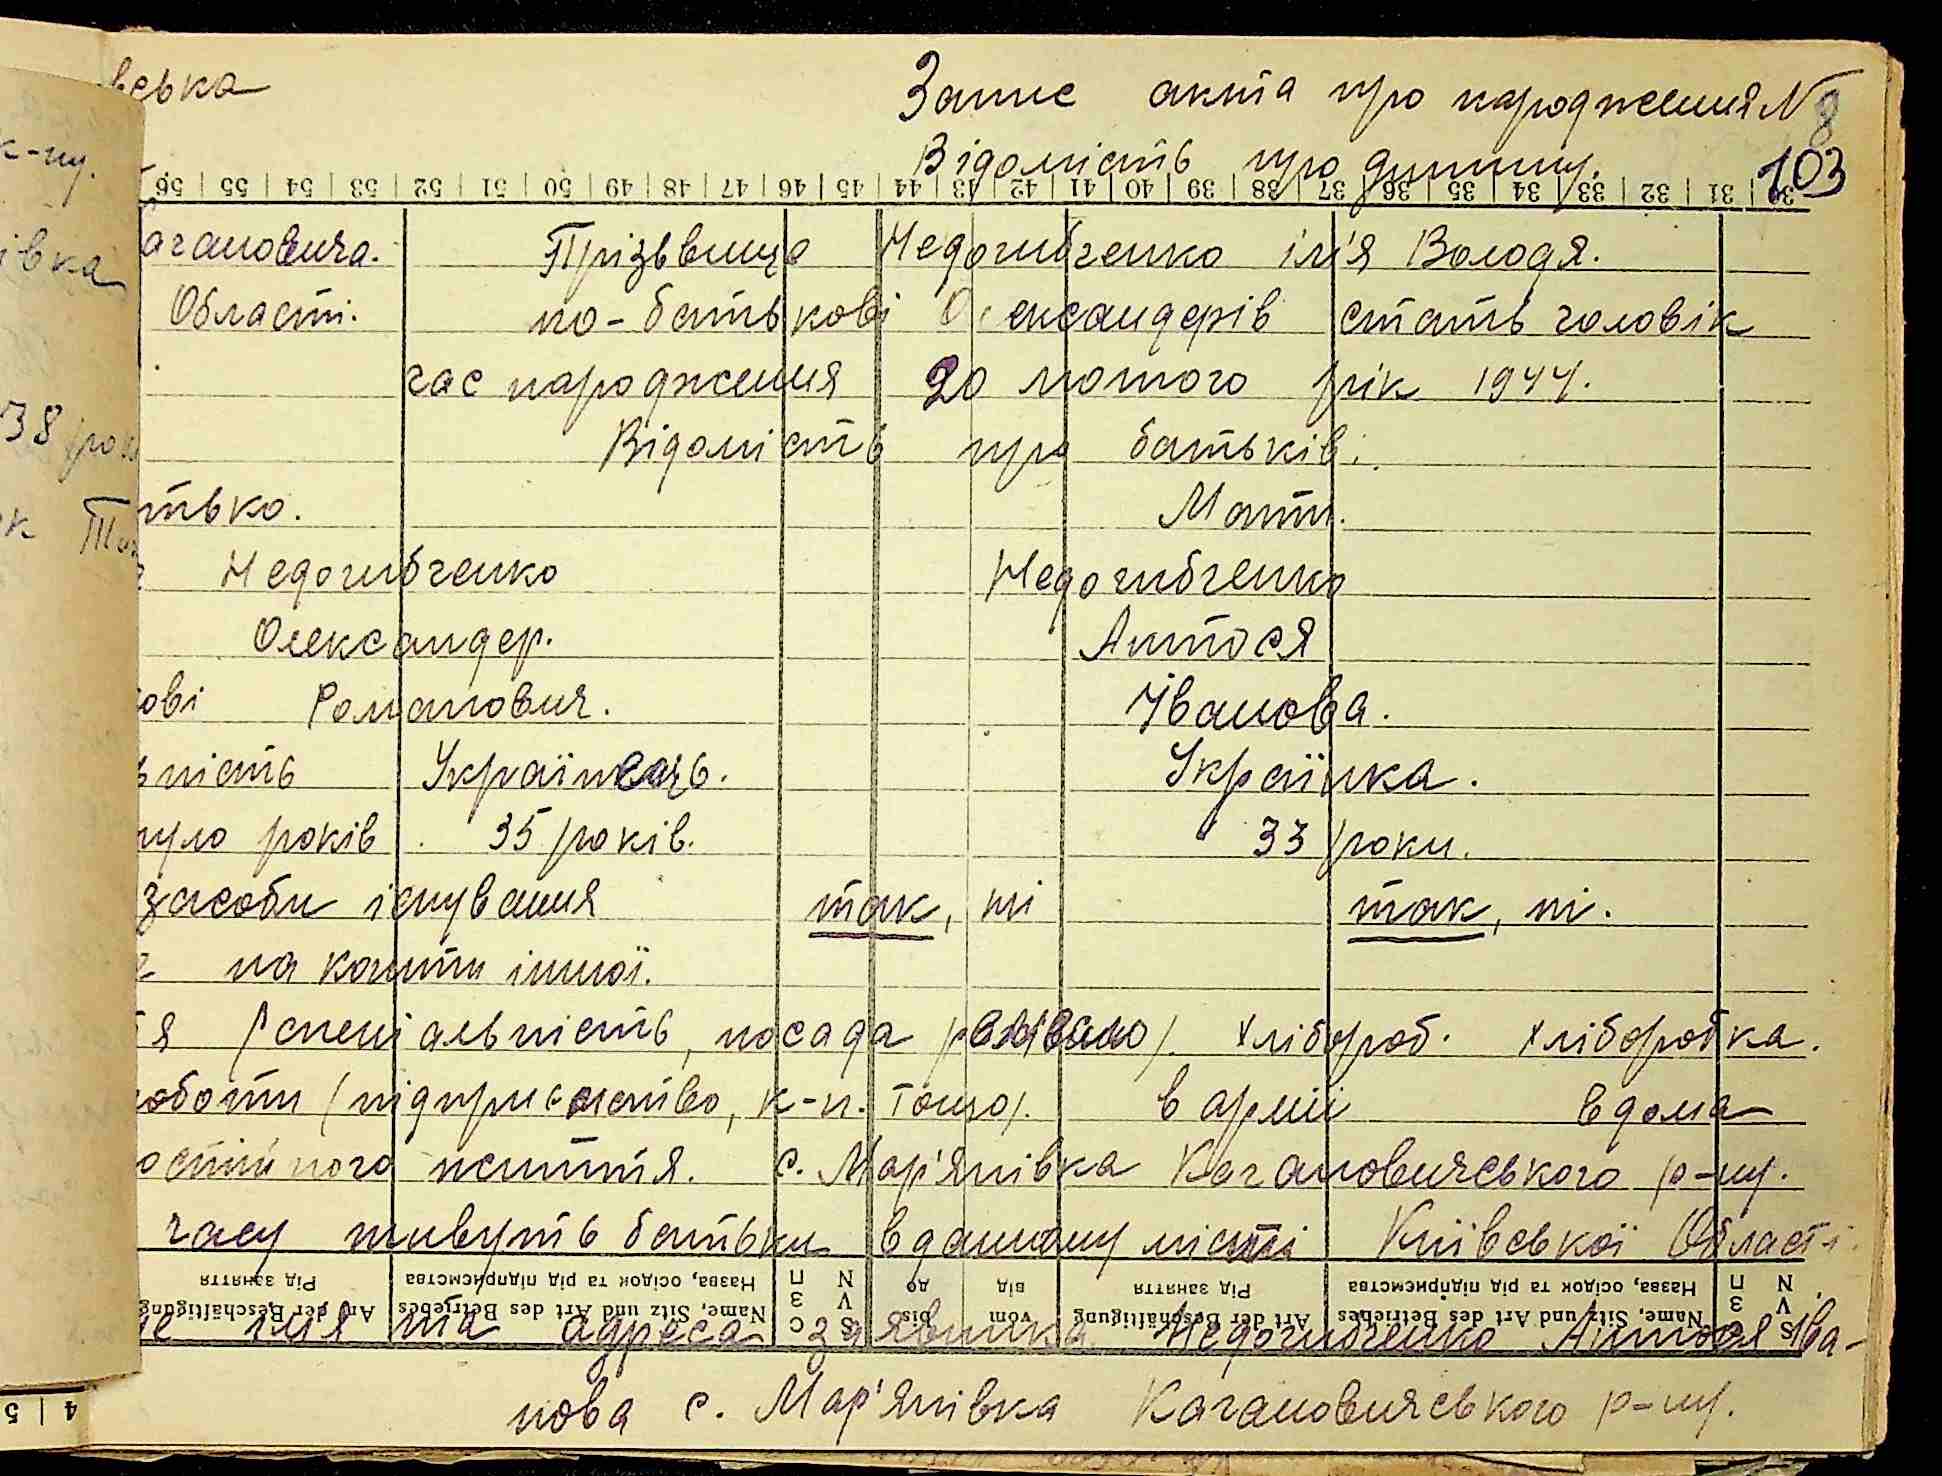 вська
Запис акта про народження N 8
к-ну.
Відомість про дитину. 103
56 | 55 | 54 | 53 | 52 | 51 | 50 | 49 | 48 | 47 | 46 | 45 | 44 | 43 | 42 | 41 | 40 | 39 | 38 | 37 | 36 | 35 | 34 | 33 | 32 | 31
івка
агановича. Прізьвище Недогибченко ім'я Володя.
Області. по-батькові Олександерів стать чоловік
час народження 20 лютого рік 1944.
38 рок
Відомість про батьків.
тько. Мати.
Недогибченко Недогибченко
Олександер. Антося
ові Романович. Іванова.
ьність Українець. Українка.
нуло років 35 років. 33 роки.
засоби існування так, ні так, ні.
на кошти іншої.
тя /спеціальність, посада / Хлібороб. Хліборобка.
оботи /підприємство, к-п. тощо/. в армії вдома
остійного життя. с. Мар'янівка Кагановичського р-ну.
часу живуть батьки в данному місті Київської Області.
Рід заняття
Назва, осідок та рід підприємства
N П
до
від
Рід заняття
Назва, осідок та рід підприємства
N П
Art der Beschäftigung
Name, Sitz und Art des Betriebes
S V З С
bis
vom
Art der Beschäftigung
Name, Sitz und Art des Betriebes
S V З С
ім'я та адреса заявника Недогибченко Антося Іва-
нова с. Мар'янівка Кагановичського р-ну.
4 | 5